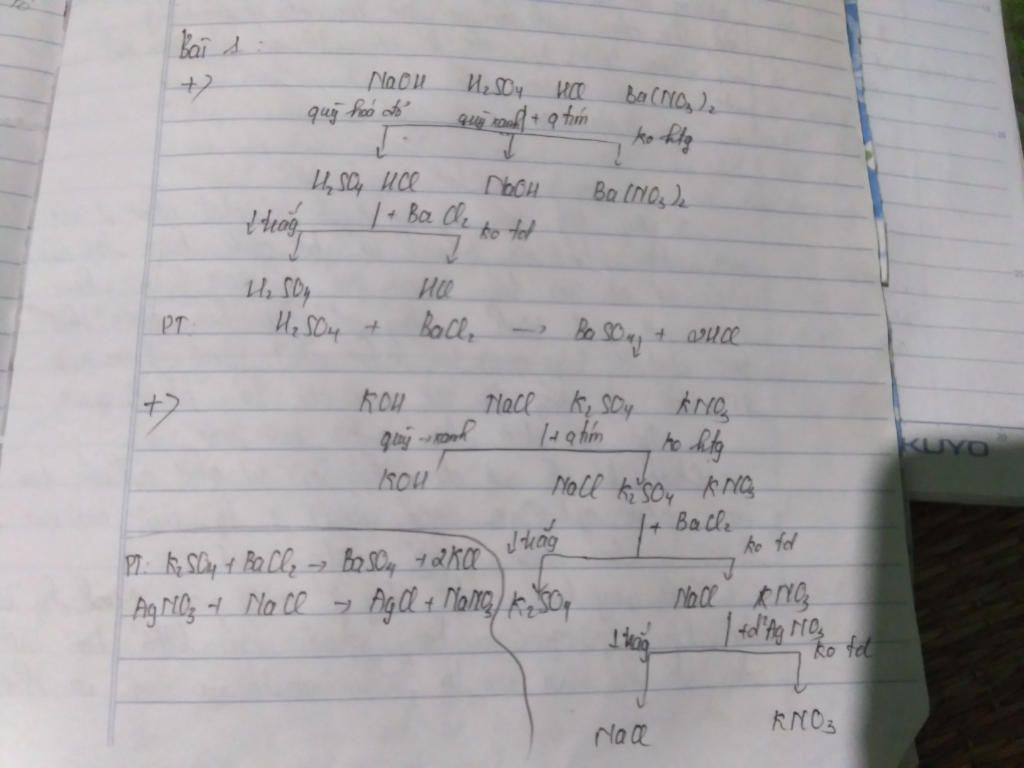 Bài 1:
+> NaOH H₂SO₄ HCl Ba(NO₃)₂
quỳ hoá đỏ quỳ xanh + q tím ko htg
H₂SO₄ HCl NaOH Ba(NO₃)₂
↓ trắg + BaCl₂ ko td
H₂SO₄ HCl
PT: H₂SO₄ + BaCl₂ → BaSO₄↓ + 2HCl
+> KOH NaCl K₂SO₄ KNO₃
quỳ → xanh + q tím ko htg
KOH NaCl K₂SO₄ KNO₃
↓ trắg + BaCl₂ ko td
PT: K₂SO₄ + BaCl₂ → BaSO₄ + 2KCl
AgNO₃ + NaCl → AgCl + NaNO₃
K₂SO₄ NaCl KNO₃
↓ trắg + d² AgNO₃ ko td
NaCl KNO₃
KUYO